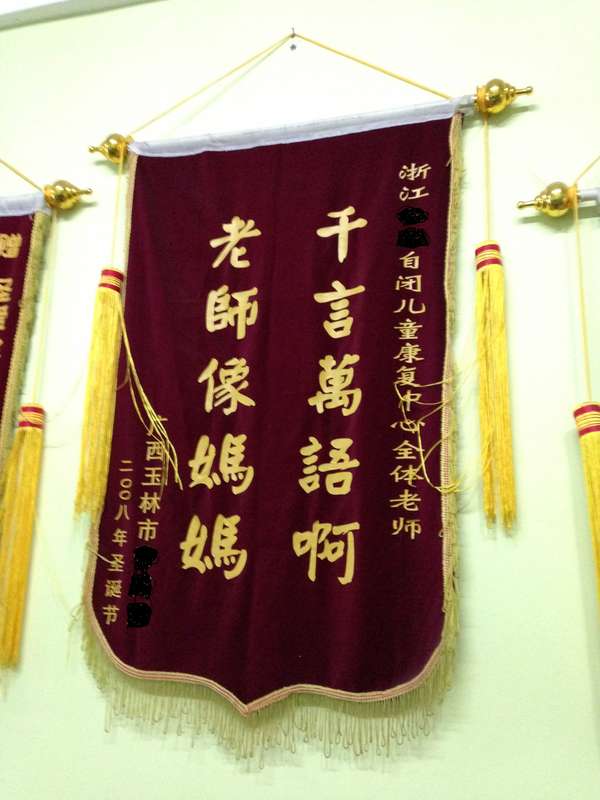 浙江自闭儿童康复中心全体老师
千言萬語啊
老師像媽媽
广西玉林市
二〇〇八年圣诞节